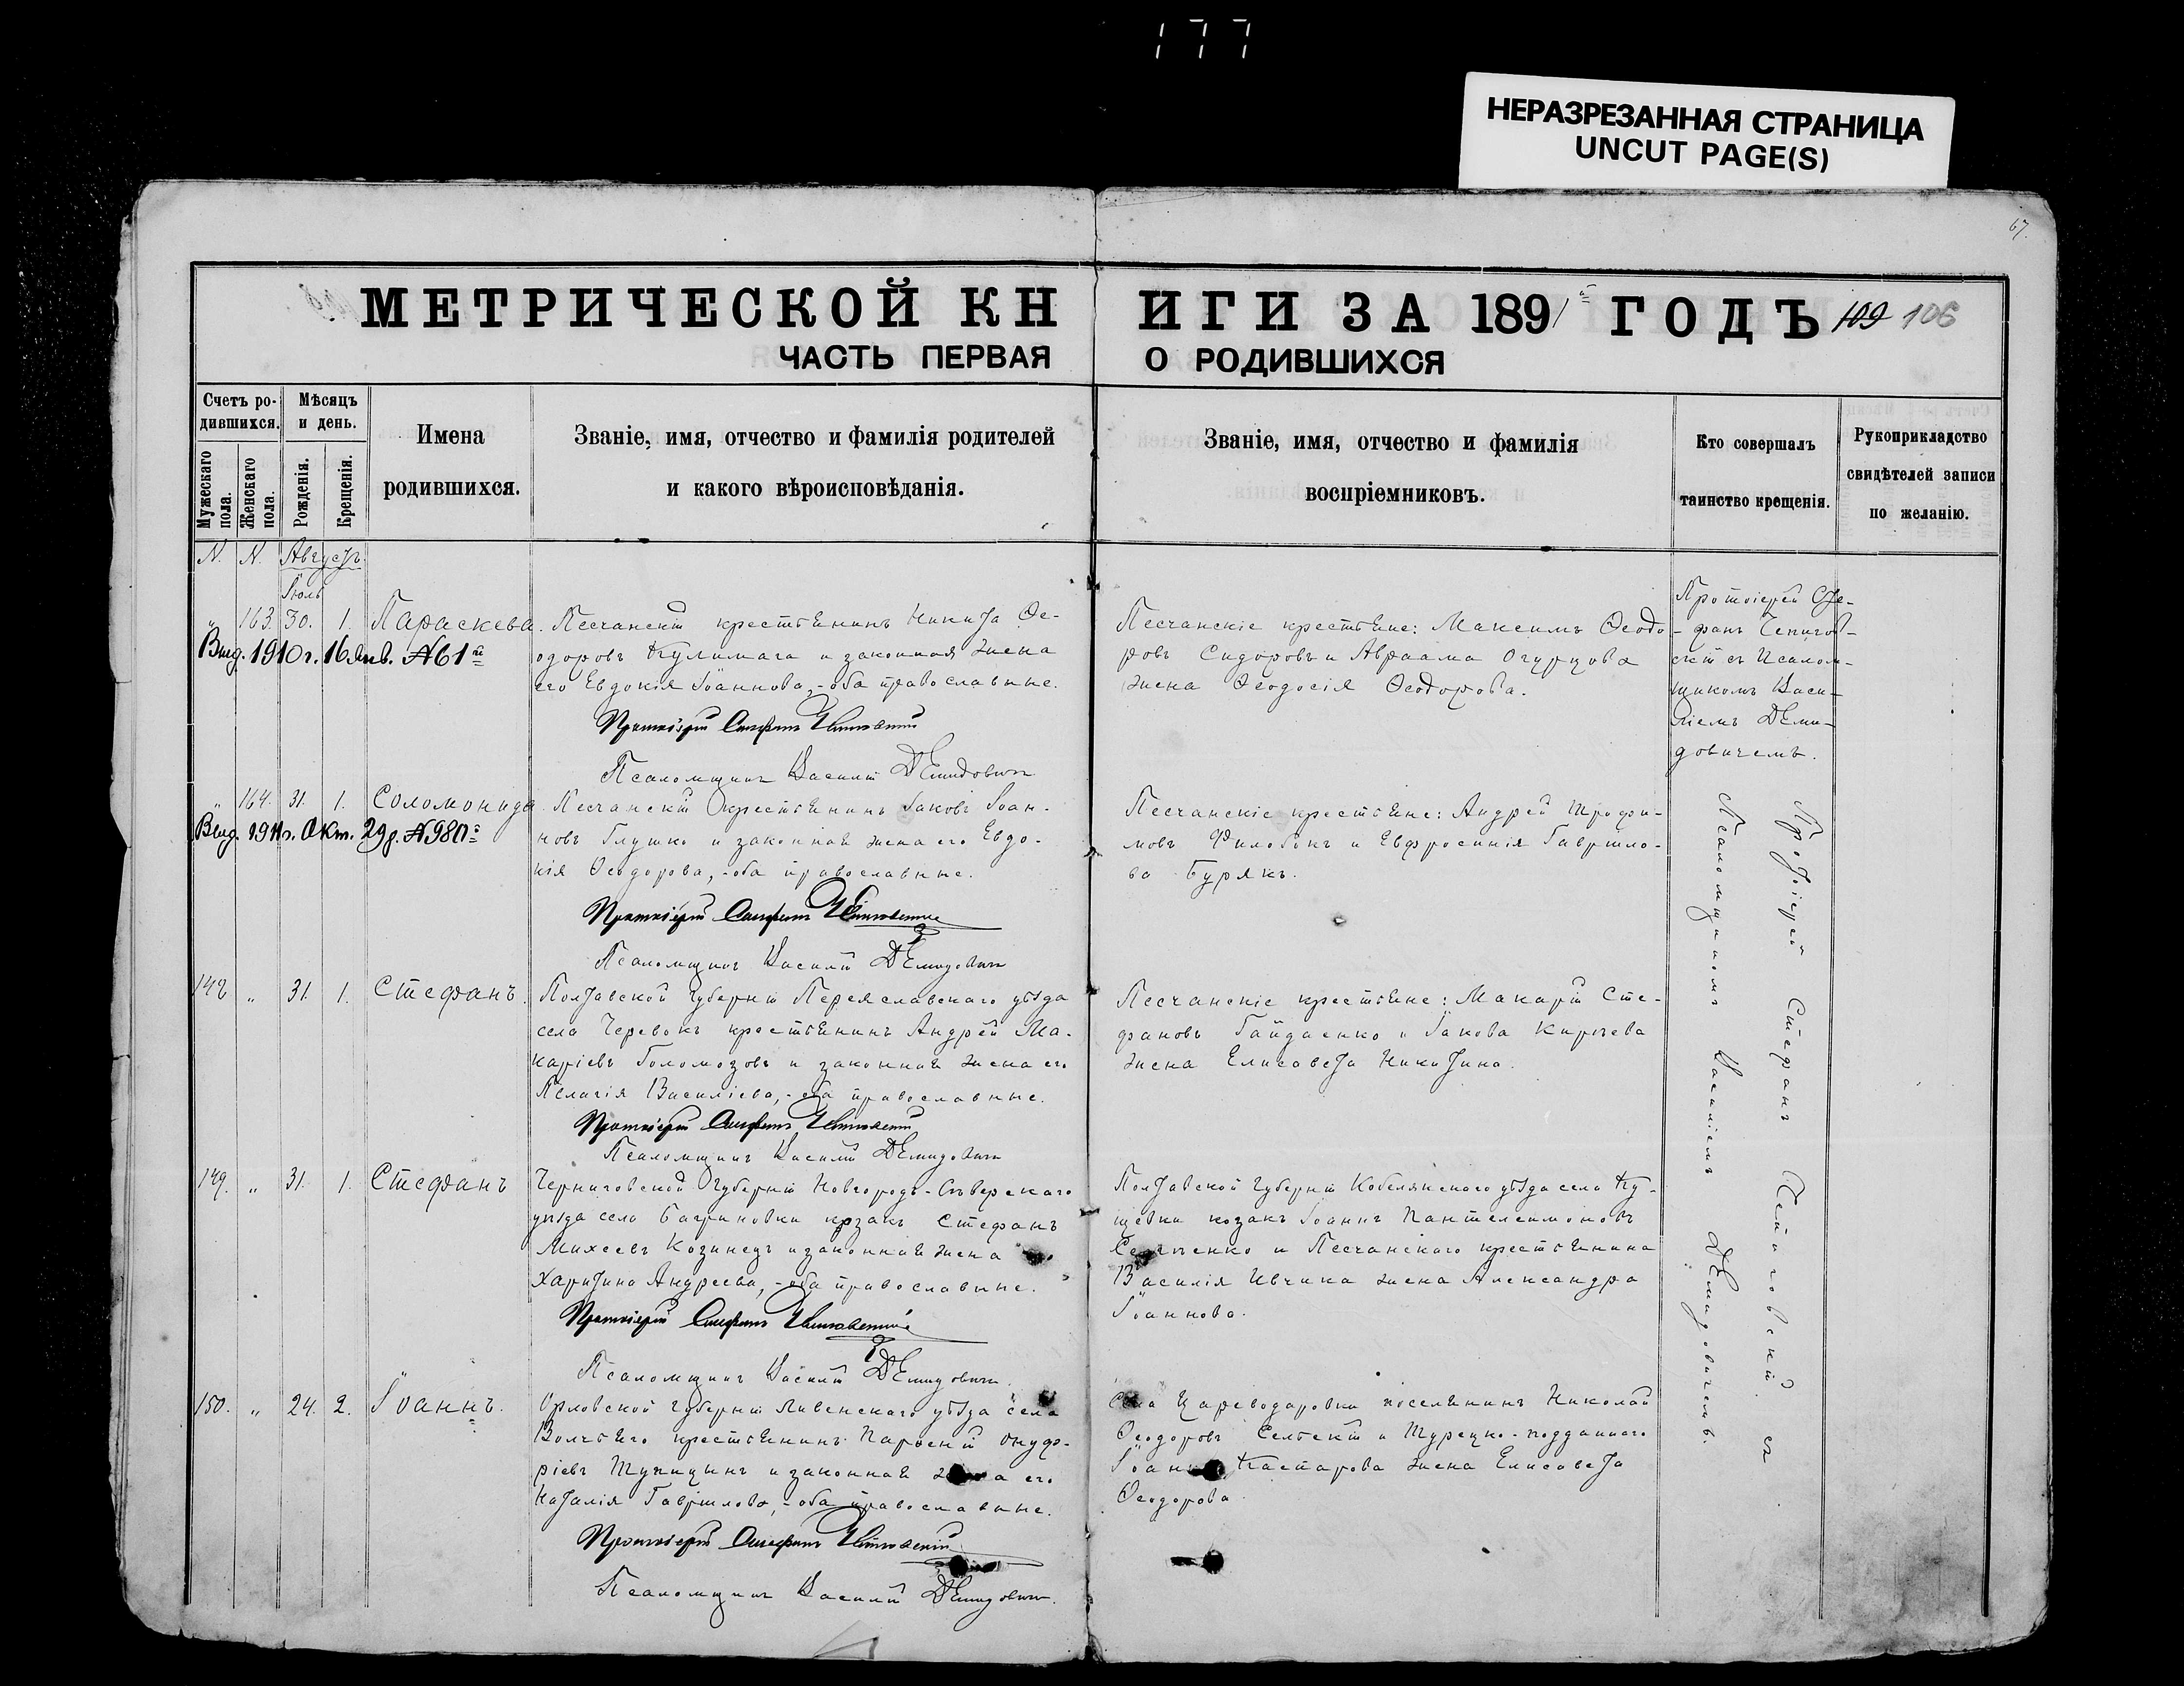 177
НЕРАЗРЕЗАННАЯ СТРАНИЦА
UNCUT PAGE(S)
67.
МЕТРИЧЕСКОЙ КНИГИ ЗА 1891й ГОДЪ 109 106
ЧАСТЬ ПЕРВАЯ О РОДИВШИХСЯ
Счетъ родившихся.
Мужескаго пола.
Женскаго пола.
Мѣсяцъ и день.
Рожденія.
Крещенія.
Имена
родившихся.
Званіе, имя, отчество и фамилія родителей
и какого вѣроисповѣданія.
Званіе, имя, отчество и фамилія
воспріемниковъ.
Кто совершалъ
таинство крещенія.
Рукоприкладство
свидѣтелей записи
по желанію.
N. N. Августъ
Іюль
" 163. 30. 1. Параскева.
Выд. 1910 г. 16 Янв. №61й
Песчанскій крестьянинъ Никита Ѳе-
одоровъ Кулимага и законная жена
его Евдокія Іоаннова,- оба православные.
Протоіерей Стефанъ
Псаломщикъ Василій Демидовичъ
Песчанскіе крестьяне: Максимъ Ѳеодо-
ровъ Сидоровъ и Авраама Огурцова
жена Ѳеодосія Ѳеодорова.
Протоіерей Сте-
фанъ
скій съ Псалом-
щикомъ Васи-
ліемъ Деми-
довичемъ.
" 164. 31. 1. Соломонида.
Выд. 1911 г. Окт. 29 д. №980й
Песчанскій крестьянинъ Іаковъ Іоан-
новъ Глушко и законная жена его Евдо-
кія Ѳеодорова,- оба православные.
Протоіерей Стефанъ
Псаломщикъ Василій Демидовичъ
Песчанскіе крестьяне: Андрей Трофи-
мовъ и Евфросинія Гавріило-
ва Бурякъ.
148 " 31. 1. Стефанъ.
Полтавской губерніи Переяславскаго уѣзда
села Черевокъ крестьянинъ Андрей Ма-
каріевъ Голомозовъ и законная жена его
Пелагія Василіева,- оба православные.
Протоіерей Стефанъ
Псаломщикъ Василій Демидовичъ
Песчанскіе крестьяне: Макарій Сте-
фановъ Гайдаенко и Іакова
жена Елисавета Никитина.
149. " 31. 1. Стефанъ
Черниговской губерніи Новгородъ-Сѣверскаго
уѣзда села козакъ Стефанъ
Михеевъ Козинецъ и законная жена его
Харитина Андреева,- оба православные.
Протоіерей Стефанъ
Псаломщикъ Василій Демидовичъ
Полтавской губерніи Кобелякскаго уѣзда села Ку-
щевки козакъ Іоаннъ Пантелеимоновъ
и Песчанскаго крестьянина
Василія Ивчика жена Александра
Іоаннова.
150. " 24. 2. Іоаннъ.
Орловской губерніи Ливенскаго уѣзда села
Волчьяго крестьянинъ Парфеній Онуф-
ріевъ и законная жена его
Наталія Гавріилова,- оба православные.
Протоіерей Стефанъ
Псаломщикъ Василій Демидовичъ.
Села Цареводаровки поселянинъ Николай
Ѳеодоровъ и Турецко-подданнаго
Іоанна Кастарова жена Елисавета
Ѳеодорова.
Протоіерей Стефанъ съ
Псаломщикомъ Василіемъ Демидовичемъ.